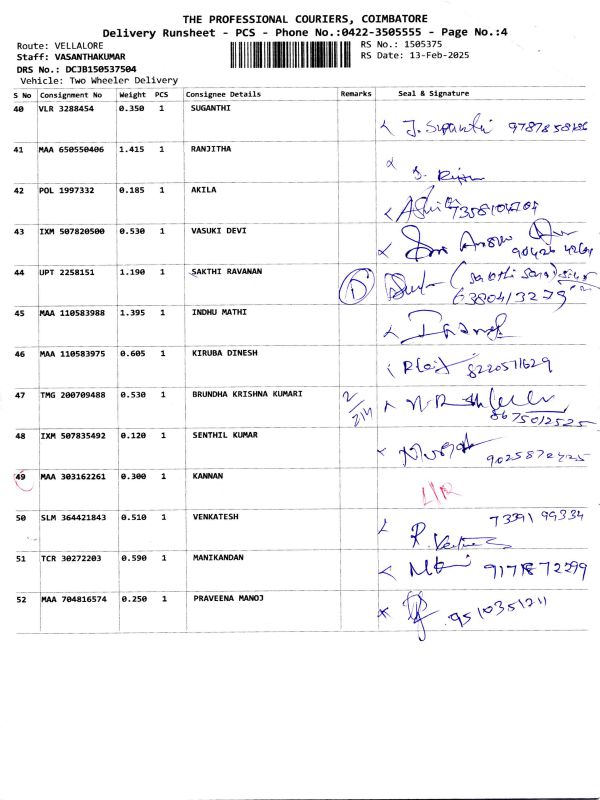 THE PROFESSIONAL COURIERS, COIMBATORE
Delivery Runsheet - PCS - Phone No.:0422-3505555 - Page No.:4
Route: VELLALORE RS No.: 1505375
Staff: VASANTHAKUMAR RS Date: 13-Feb-2025
DRS No.: DCJB150537504
Vehicle: Two Wheeler Delivery
S No Consignment No Weight PCS Consignee Details Remarks Seal & Signature
40 VLR 3288454 0.350 1 SUGANTHI
41 MAA 650550406 1.415 1 RANJITHA
42 POL 1997332 0.185 1 AKILA
43 IXM 507820500 0.530 1 VASUKI DEVI
44 UPT 2258151 1.190 1 SAKTHI RAVANAN D
6380413279
45 MAA 110583988 1.395 1 INDHU MATHI
46 MAA 110583975 0.605 1 KIRUBA DINESH
8220571629
47 TMG 200709488 0.530 1 BRUNDHA KRISHNA KUMARI
8675012525
48 IXM 507835492 0.120 1 SENTHIL KUMAR
49 MAA 303162261 0.300 1 KANNAN
50 SLM 364421843 0.510 1 VENKATESH 7339199334
51 TCR 30272203 0.590 1 MANIKANDAN
52 MAA 704816574 0.250 1 PRAVEENA MANOJ 9510351211